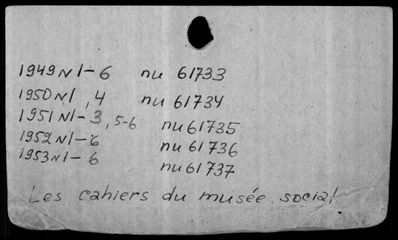 1949 N1-6 nu 61733
1950 N1, 4 nu 61734
1951 N1-3, 5-6 nu 61735
1952 N1-6 nu 61736
1953 N1-6 nu 61737
Les cahiers du musée social